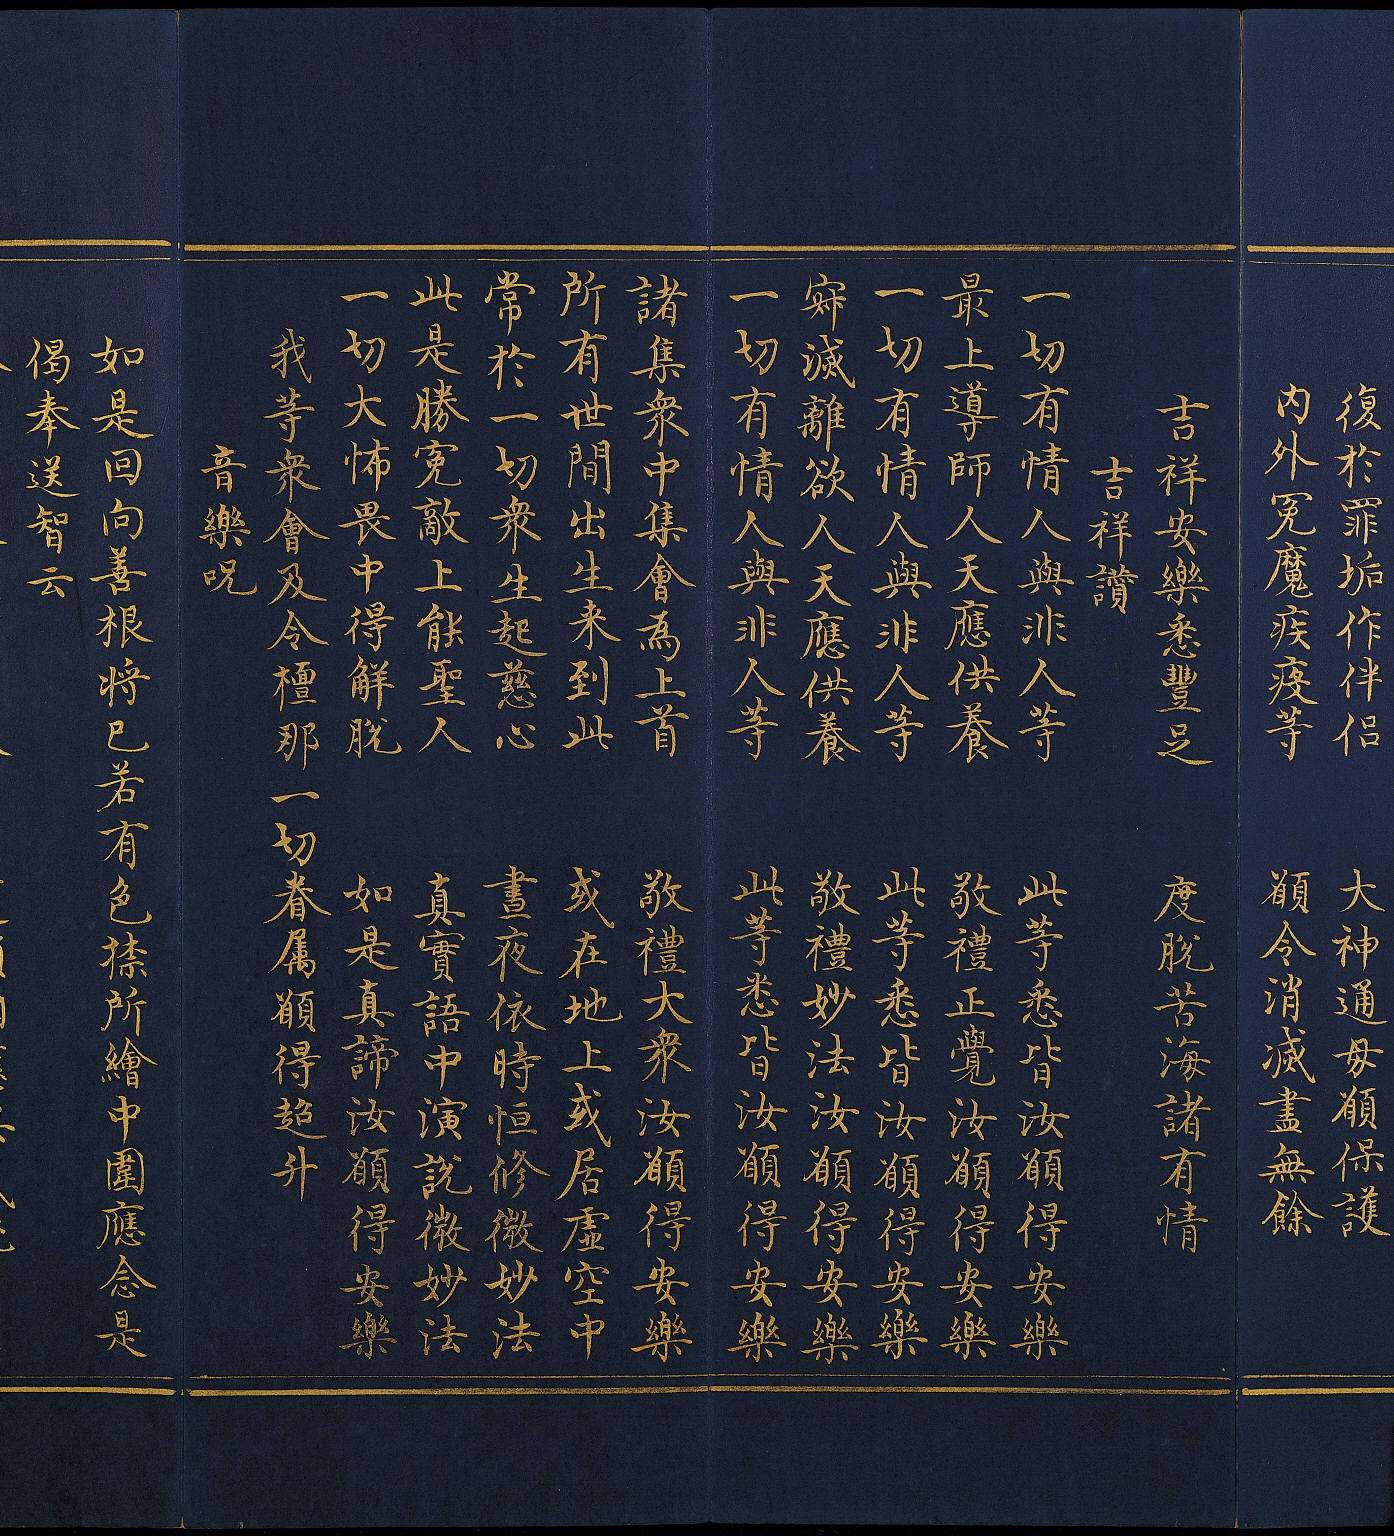 復於罪垢作伴侶　大神通母願保護
內外冤魔疾疫等　願令消滅盡無餘
吉祥安樂悉豐足　度脫苦海諸有情
吉祥讚
一切有情人與非人等　此等悉皆汝願得安樂
最上導師人天應供養　敬禮正覺汝願得安樂
一切有情人與非人等　此等悉皆汝願得安樂
寂滅離欲人天應供養　敬禮妙法汝願得安樂
一切有情人與非人等　此等悉皆汝願得安樂
諸集衆中集會為上首　敬禮大衆汝願得安樂
所有世間出生来到此　或在地上或居虛空中
常於一切衆生起慈心　晝夜依時恒修微妙法
此是勝冤敵上能聖人　真實語中演說微妙法
一切大怖畏中得解脫　如是真諦汝願得安樂
我等衆會及令檀那一切眷属願得超升
音樂呪
如是回向善根将已若有色搽所繪中圍應念是
偈奉送智云